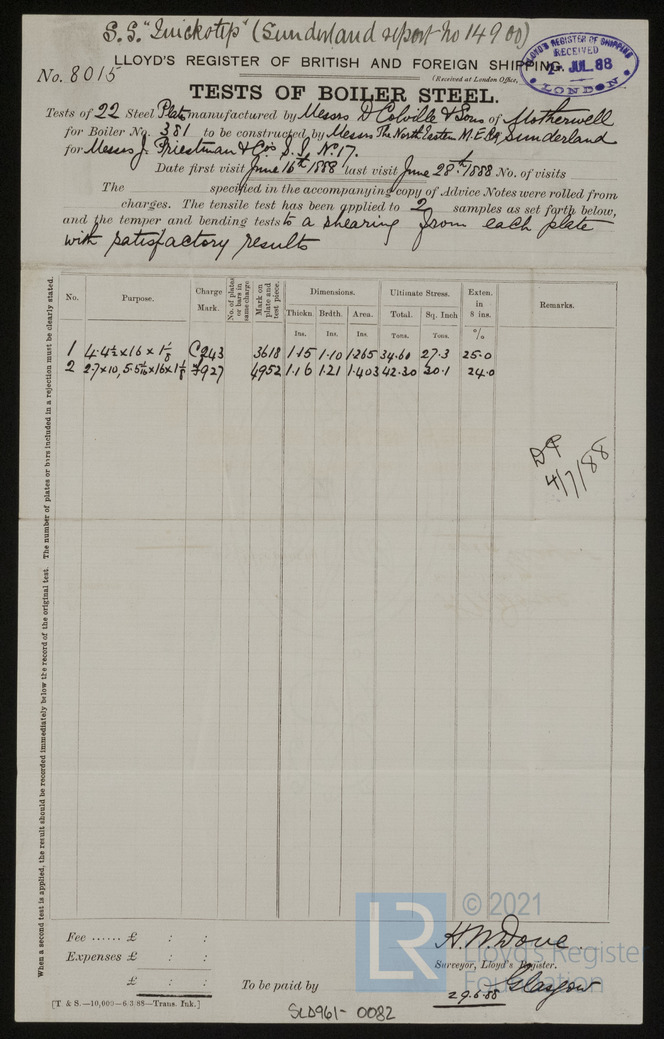 S.S. "Quickstep" (Sunderland report no 14900)
LLOYD'S REGISTER OF BRITISH AND FOREIGN SHIPPING.
LLOYD'S REGISTER OF SHIPPING
RECEIVED
2- JUL. 88
LONDON
No. 8015
(Received at London Office,
TESTS OF BOILER STEEL.
Tests of 22 Steel Plates manufactured by Messrs D Colville & Sons of Motherwell
for Boiler No. 381 to be constructed by Messrs The North Eastern M. E. Co., Sunderland
for Messrs J. Priestman & Co's S. S. No. 17.
Date first visit June 16th 1888 last visit June 28th 1888 No. of visits
The specified in the accompanying copy of Advice Notes were rolled from
charges. The tensile test has been applied to 2 samples as set forth below,
and the temper and bending tests to a shearing from each plate
with satisfactory results
No. Purpose. Charge Mark. No. of plates or bars in same charge Mark on plate and test piece. Dimensions. Ultimate Stress. Exten. in 8 ins. Remarks.
Thickn Brdth. Area. Total. Sq. Inch
Ins. Ins. Ins. Tons. Tons. %
1 4.4½ x 16 x 1⅛ C243 3618 1.15 1.10 1.265 34.60 27.3 25.0
2 27 x 10, 5.5 x 16 x 1⅛ 7927 4952 1.16 1.21 1.403 42.30 30.1 24.0
4/7/88
When a second test is applied, the result should be recorded immediately below the record of the original test. The number of plates or bars included in a rejection must be clearly stated.
Fee ...... £ : :
Expenses £ : :
£ : :
To be paid by
H. W. Dove.
Surveyor, Lloyd's Register.
Glasgow
29.6.88
[T & S.—10,000—6/3/88—Trans. Ink.]
SLD961-0082
LR
© 2021
Lloyd's Register
Foundation